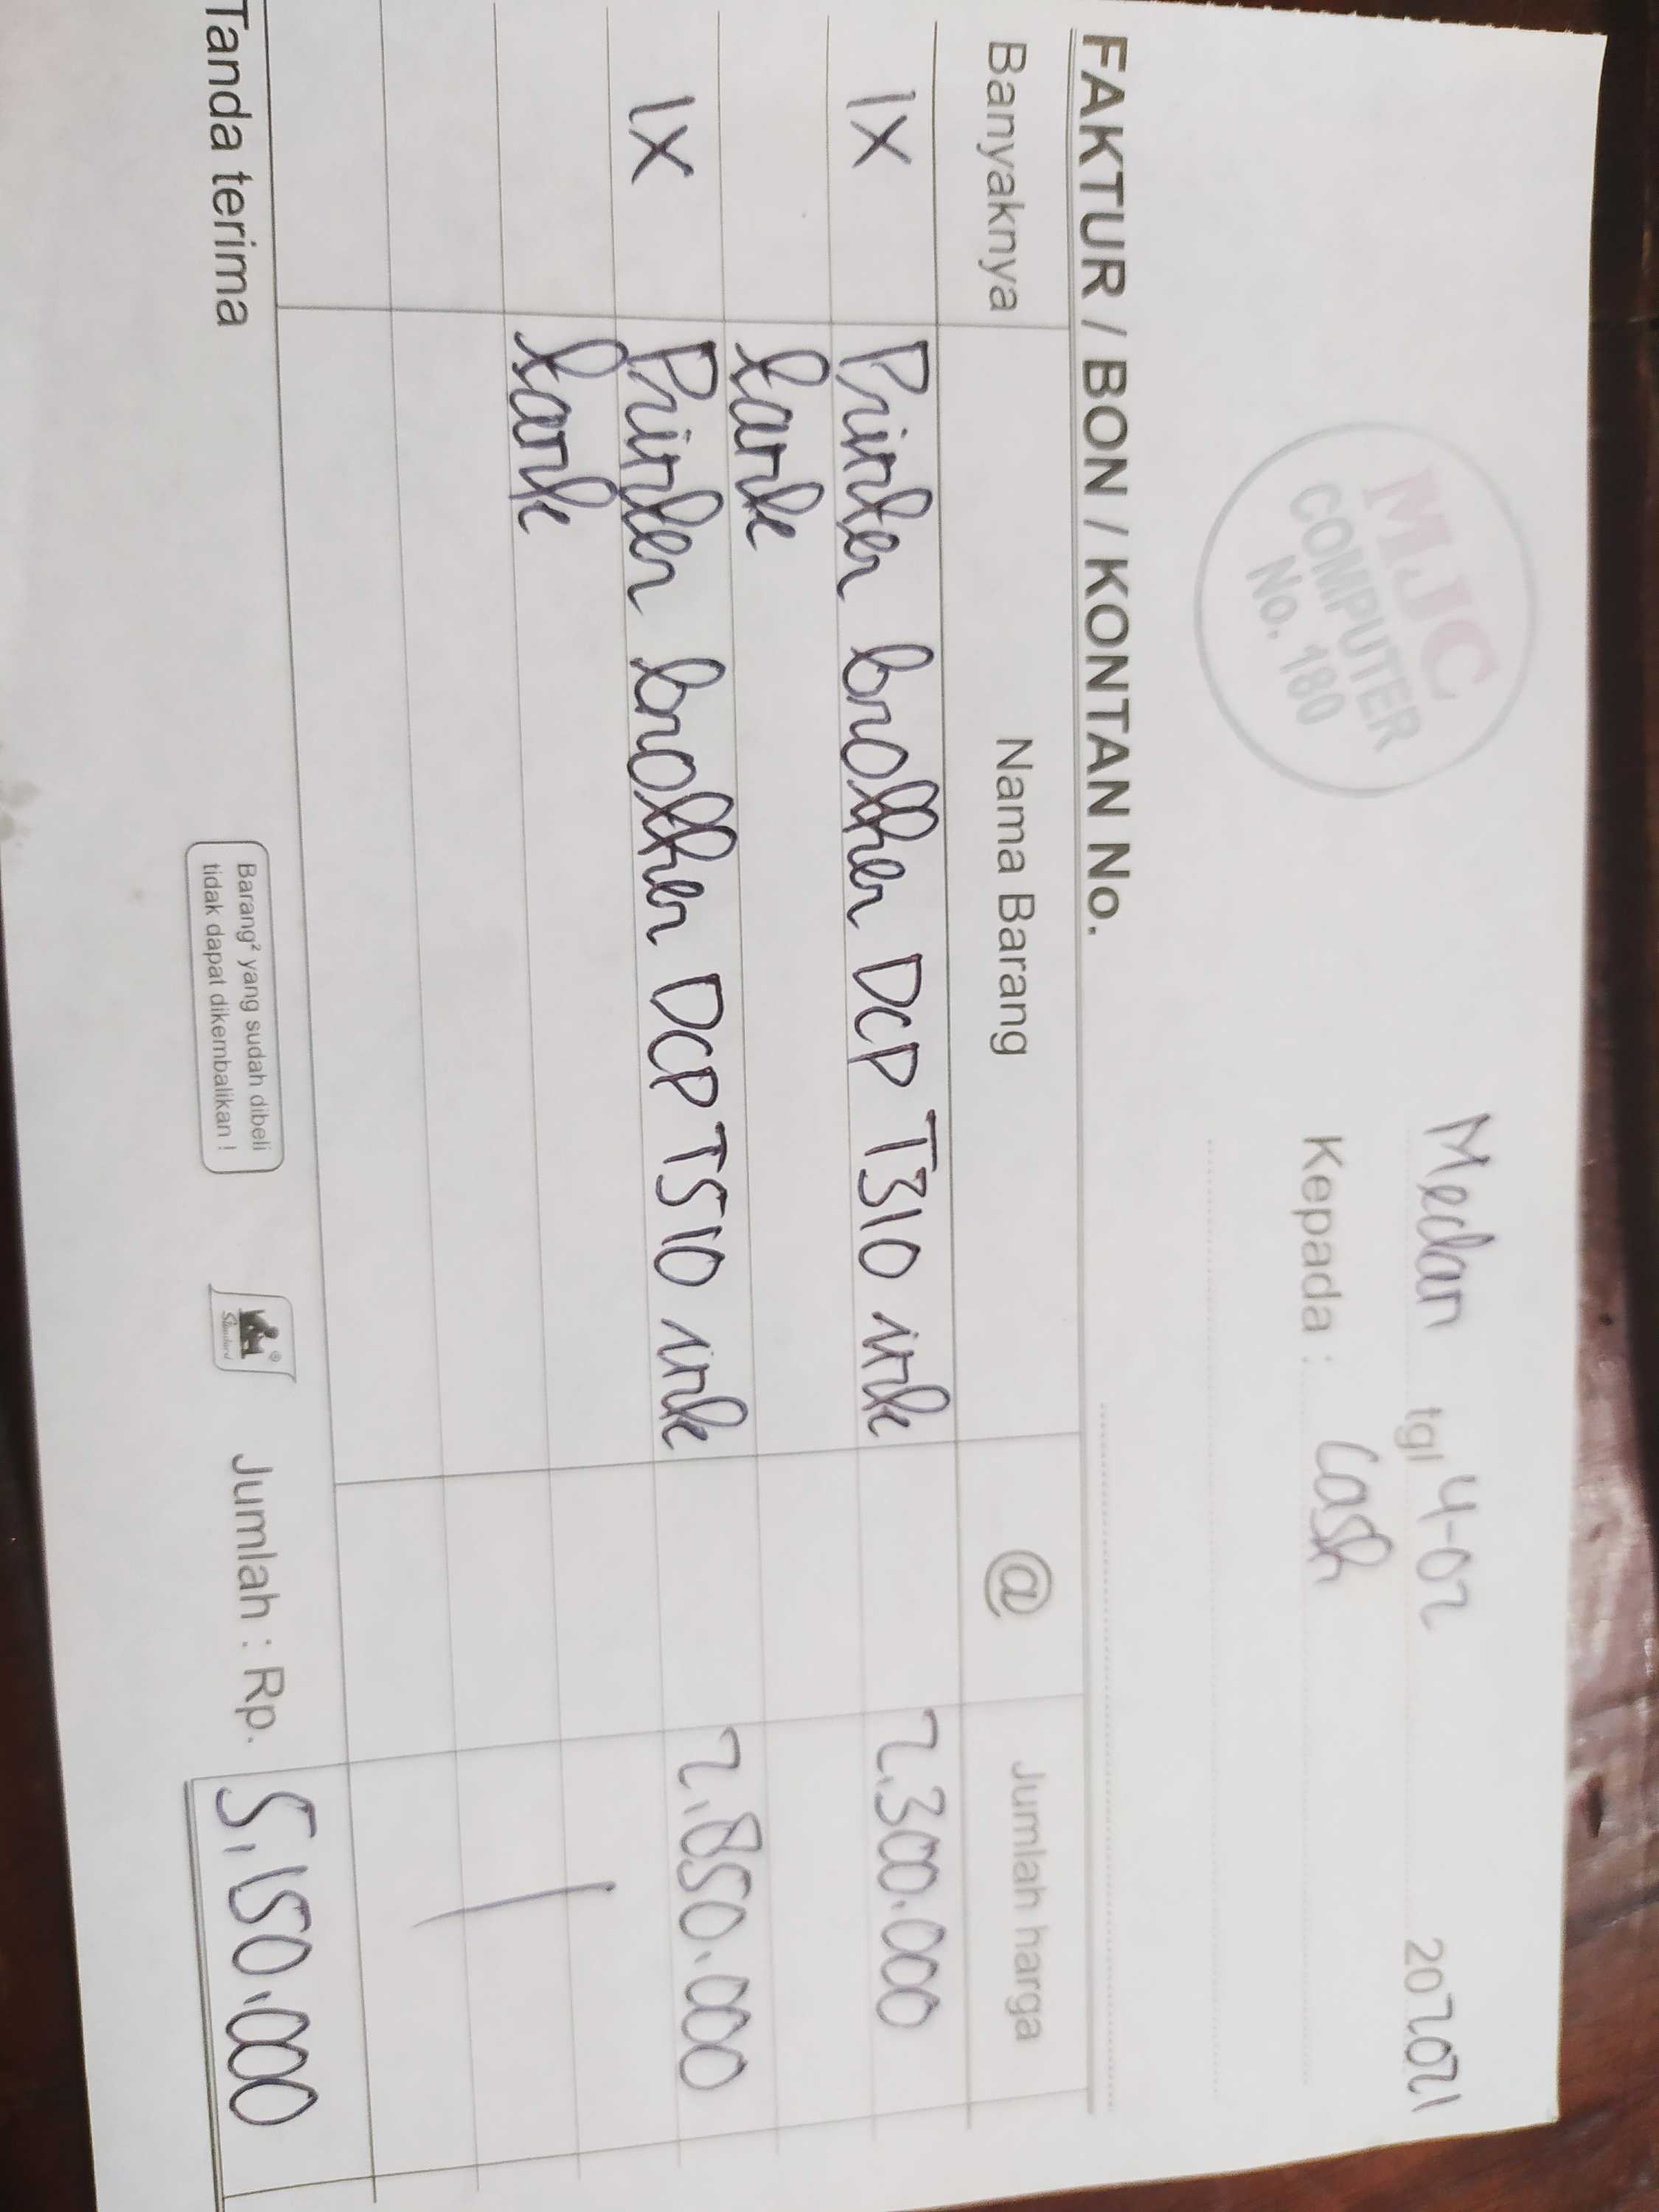 MJC
COMPUTER
No. 180
Medan tgl 4-02 202021
Kepada : Cash
FAKTUR / BON / KONTAN No.
Banyaknya Nama Barang @ Jumlah harga
1x Printer brother DCP T310 ink 2.300.000
tank
1x Printer brother DCP T510 ink 2.850.000
tank
Tanda terima
Barang² yang sudah dibeli
tidak dapat dikembalikan !
Standard
Jumlah : Rp. 5,150.000